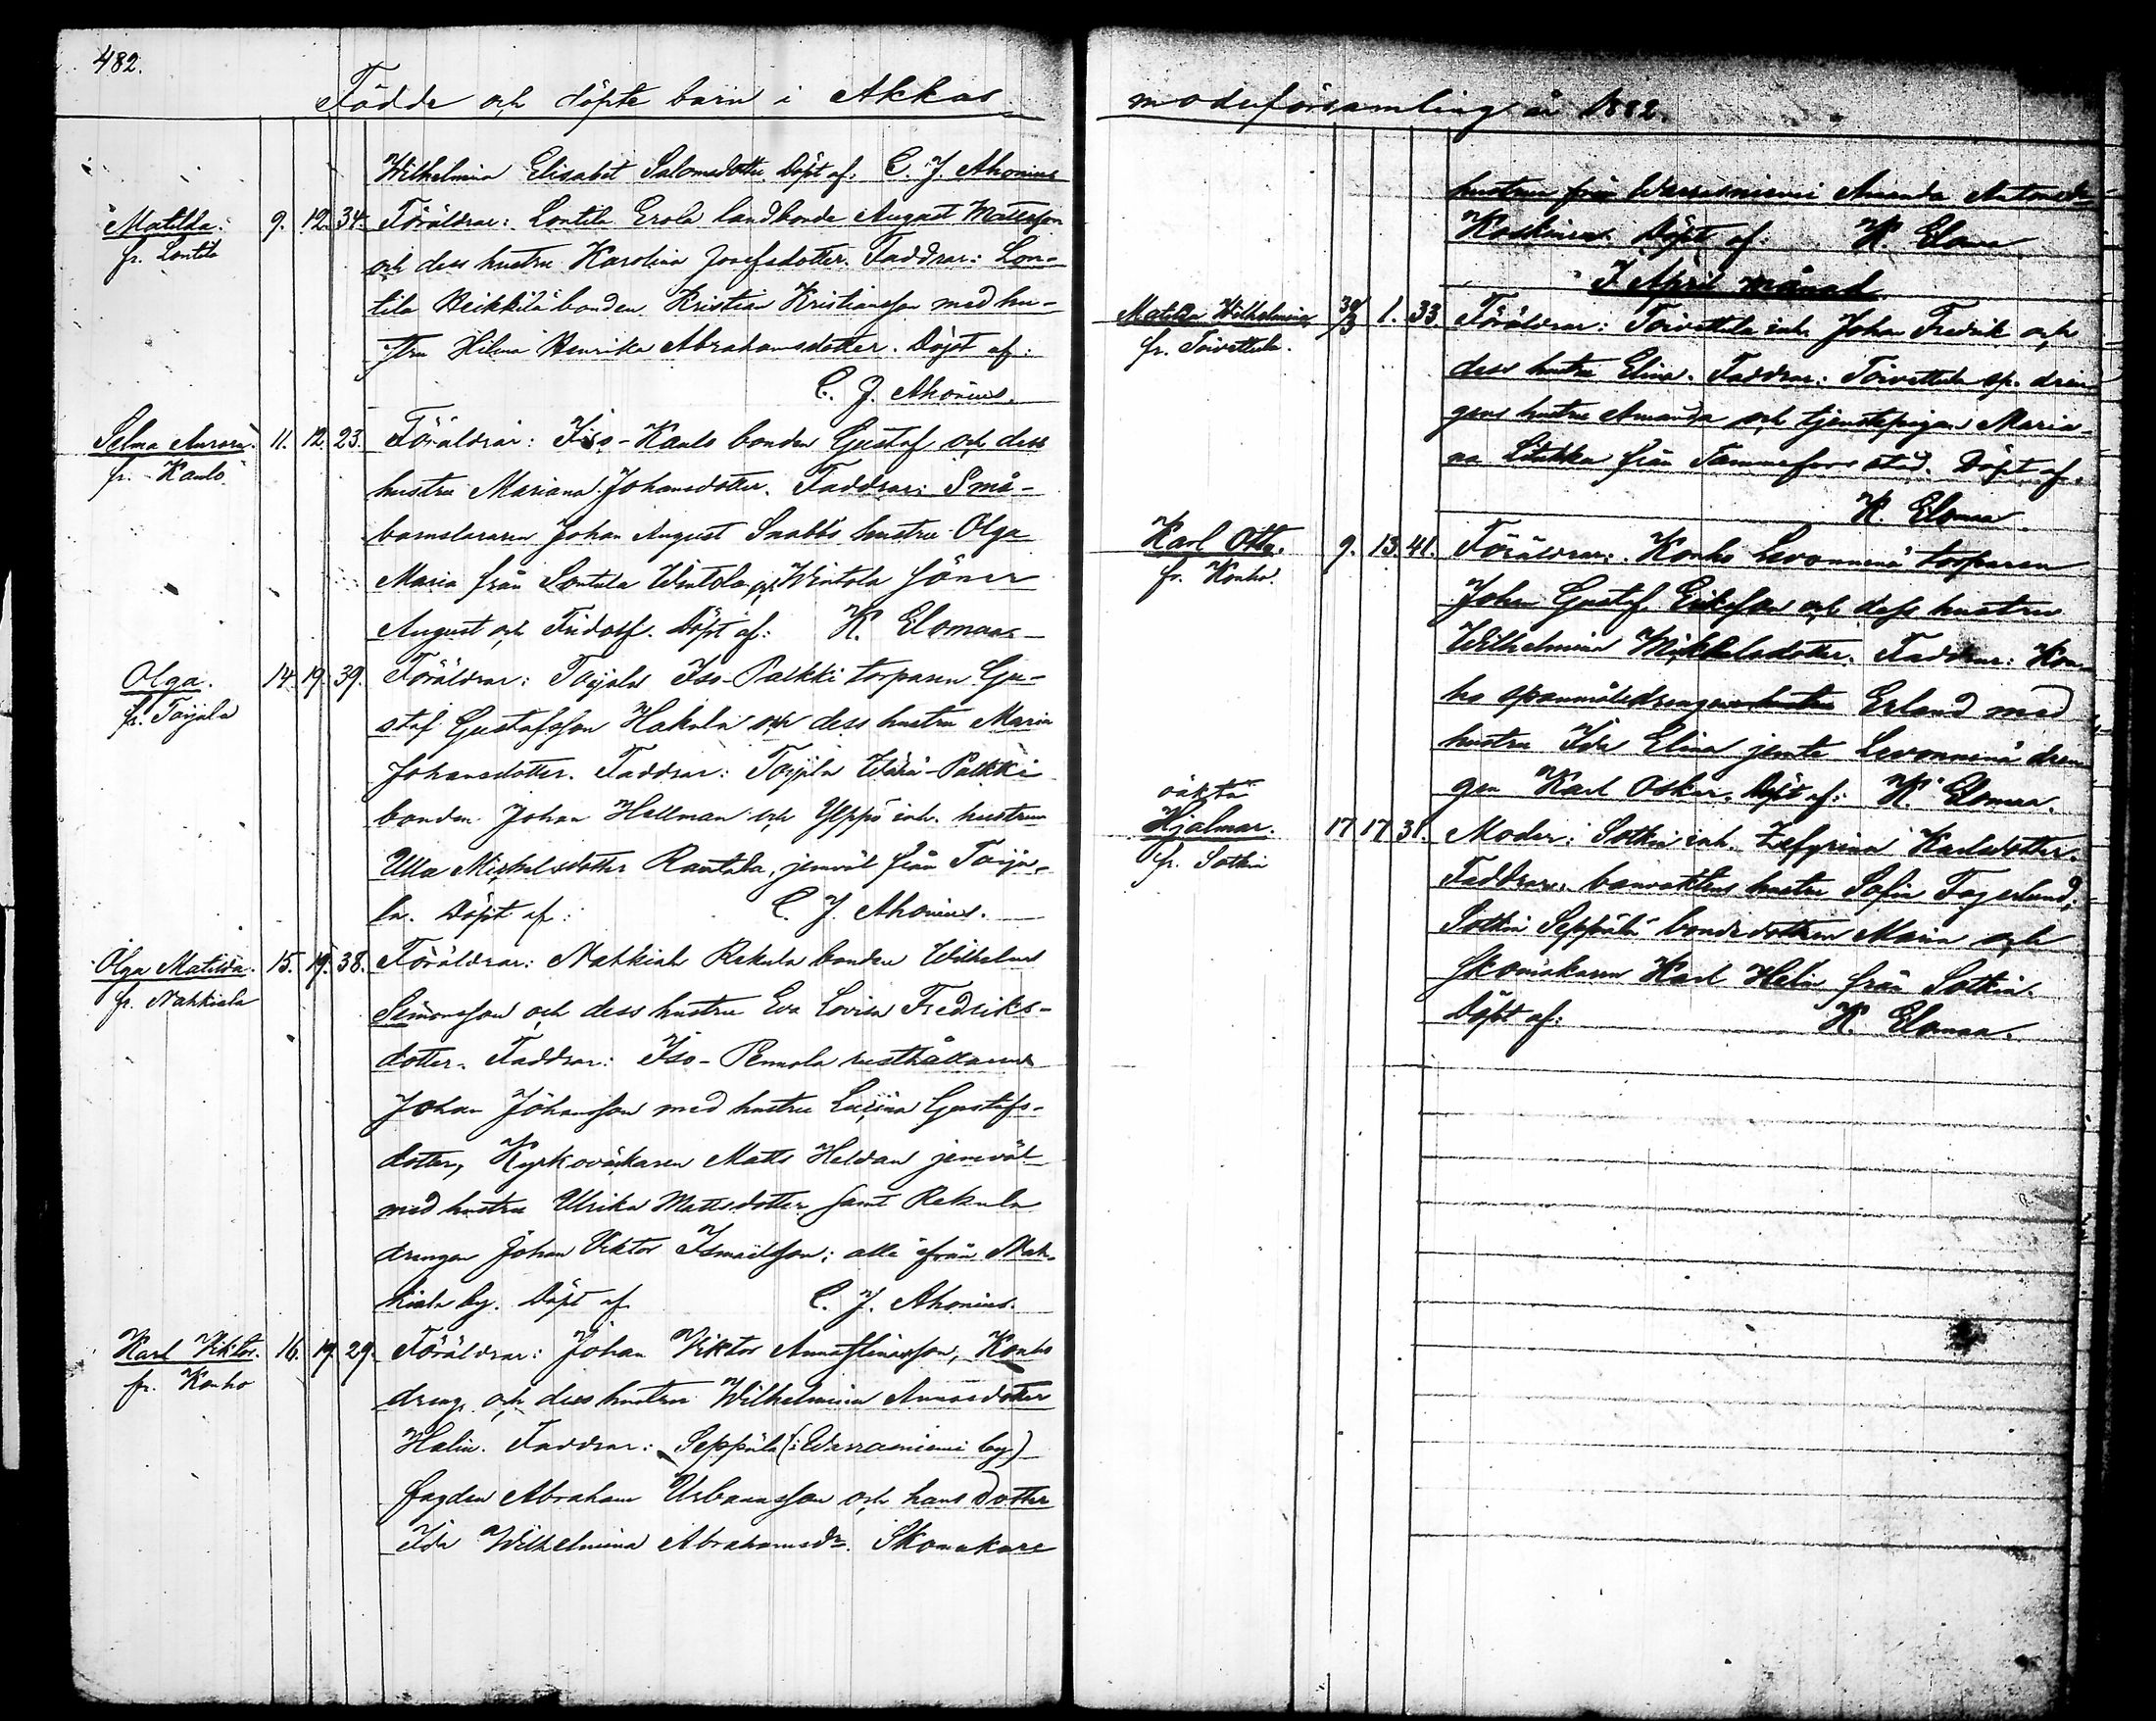 482.
Födde och döpte barn i Akkas
Wilhelmina Elisabet Salomsdotter. Döpt af: C. J. Ahonius
Matilda. 9. 12. 34. Föräldrar: Lontila Erola landbonde August Mattsson
fr. Lontila
och dess hustru Karolina Josefsdotter. Faddrar: Lon-
tila Heikkilä bonden Kristian Kristiansson med hu-
stru Hilma Henrika Abrahamsdotter. Döpt af:
C. J. Ahonius.
Selma Aurora. 11. 12. 23. Föräldrar: Iso-Kauls bonden Gustaf och dess
fr. Kauls
hustru Mariana Johansdotter. Faddrar: Små-
barnsläraren Johan August Snabbs hustru Olga
Maria från Sontula Wintola och Wintola söner
August och Fridolf. Döpt af: K. Elomaa
Olga. 14. 19. 39. Föräldrar: Toijala Iso-Palkki torparen Gu-
fr. Toijala
staf Gustafsson Hakala och dess hustru Maria
Johansdotter. Faddrar: Toijala Wähä-Palkki
bonden Johan Hellman och Yppö inh. hustrun
Ulla Mickelsdotter Rantala, jemväl från Toija-
la. Döpt af: C. J. Ahonius.
Olga Matilda. 15. 19. 38. Föräldrar: Nahkiala Rekula bonden Wilhelm
fr. Nahkiala
Simonsson och dess hustru Eva Lovisa Fredriks-
dotter. Faddrar: Iso-Pennola rusthållaren
Johan Johansson med hustru Lusina Gustafs-
dotter, Kyrkoväktaren Matts Heldan jemväl
med hustru Ulrika Mattsdotter samt Rekula
drengen Johan Viktor Ismaelsson; alla från Nah-
kiala by. Döpt af C. J. Ahonius.
Karl Viktor. 16. 19. 29. Föräldrar: Johan Viktor Annastinasson, Konho
fr. Konho
dreng, och dess hustru Wilhelmina Annasdotter
Halin. Faddrar: Seppälä (i Warrasniemi by)
fogden Abraham Urbansson och hans dotter
Ida Wilhelmina Abrahamsdr. Skomakare
moderförsamling år 1882.
hustrun från Warrasniemi Amanda Antonsdr
Koskinen. Döpt af: K. Elomaa
I April månad.
Matilda Wilhelmina 30/3 1. 33. Föräldrar: Toivettula inh. Johan Fredrik och
fr. Toivettula.
dess hustru Elina. Faddrar: Toivettula sp. dren-
gens hustru Amanda och tjenstepigan Maria-
na Litukka från Tammerfors stad. Döpt af:
K. Elomaa
Karl Otto. 9. 13. 41. Föräldrar: Konho Levonmenä torparen
fr. Konho.
Johan Gustaf Eriksson och dess hustru
Wilhelmina Mickelsdotter. Faddrar: Kon-
ho spanmålsdrengen Erland med
hustru Ida Elina jemte Levonmenä dren-
gen Karl Oskar. Döpt af: K. Elomaa.
oäkta
Hjalmar. 17. 17. 31. Moder: Sotkia inh. Zefyrina Karlsdotter.
fr. Sotkia
Faddrar: banvaktens hustru Sofia Fagerlund,
Sotkia Seppälä bondedottren Maria och
skomakaren Karl Helin från Sotkia.
Döpt af: K. Elomaa.